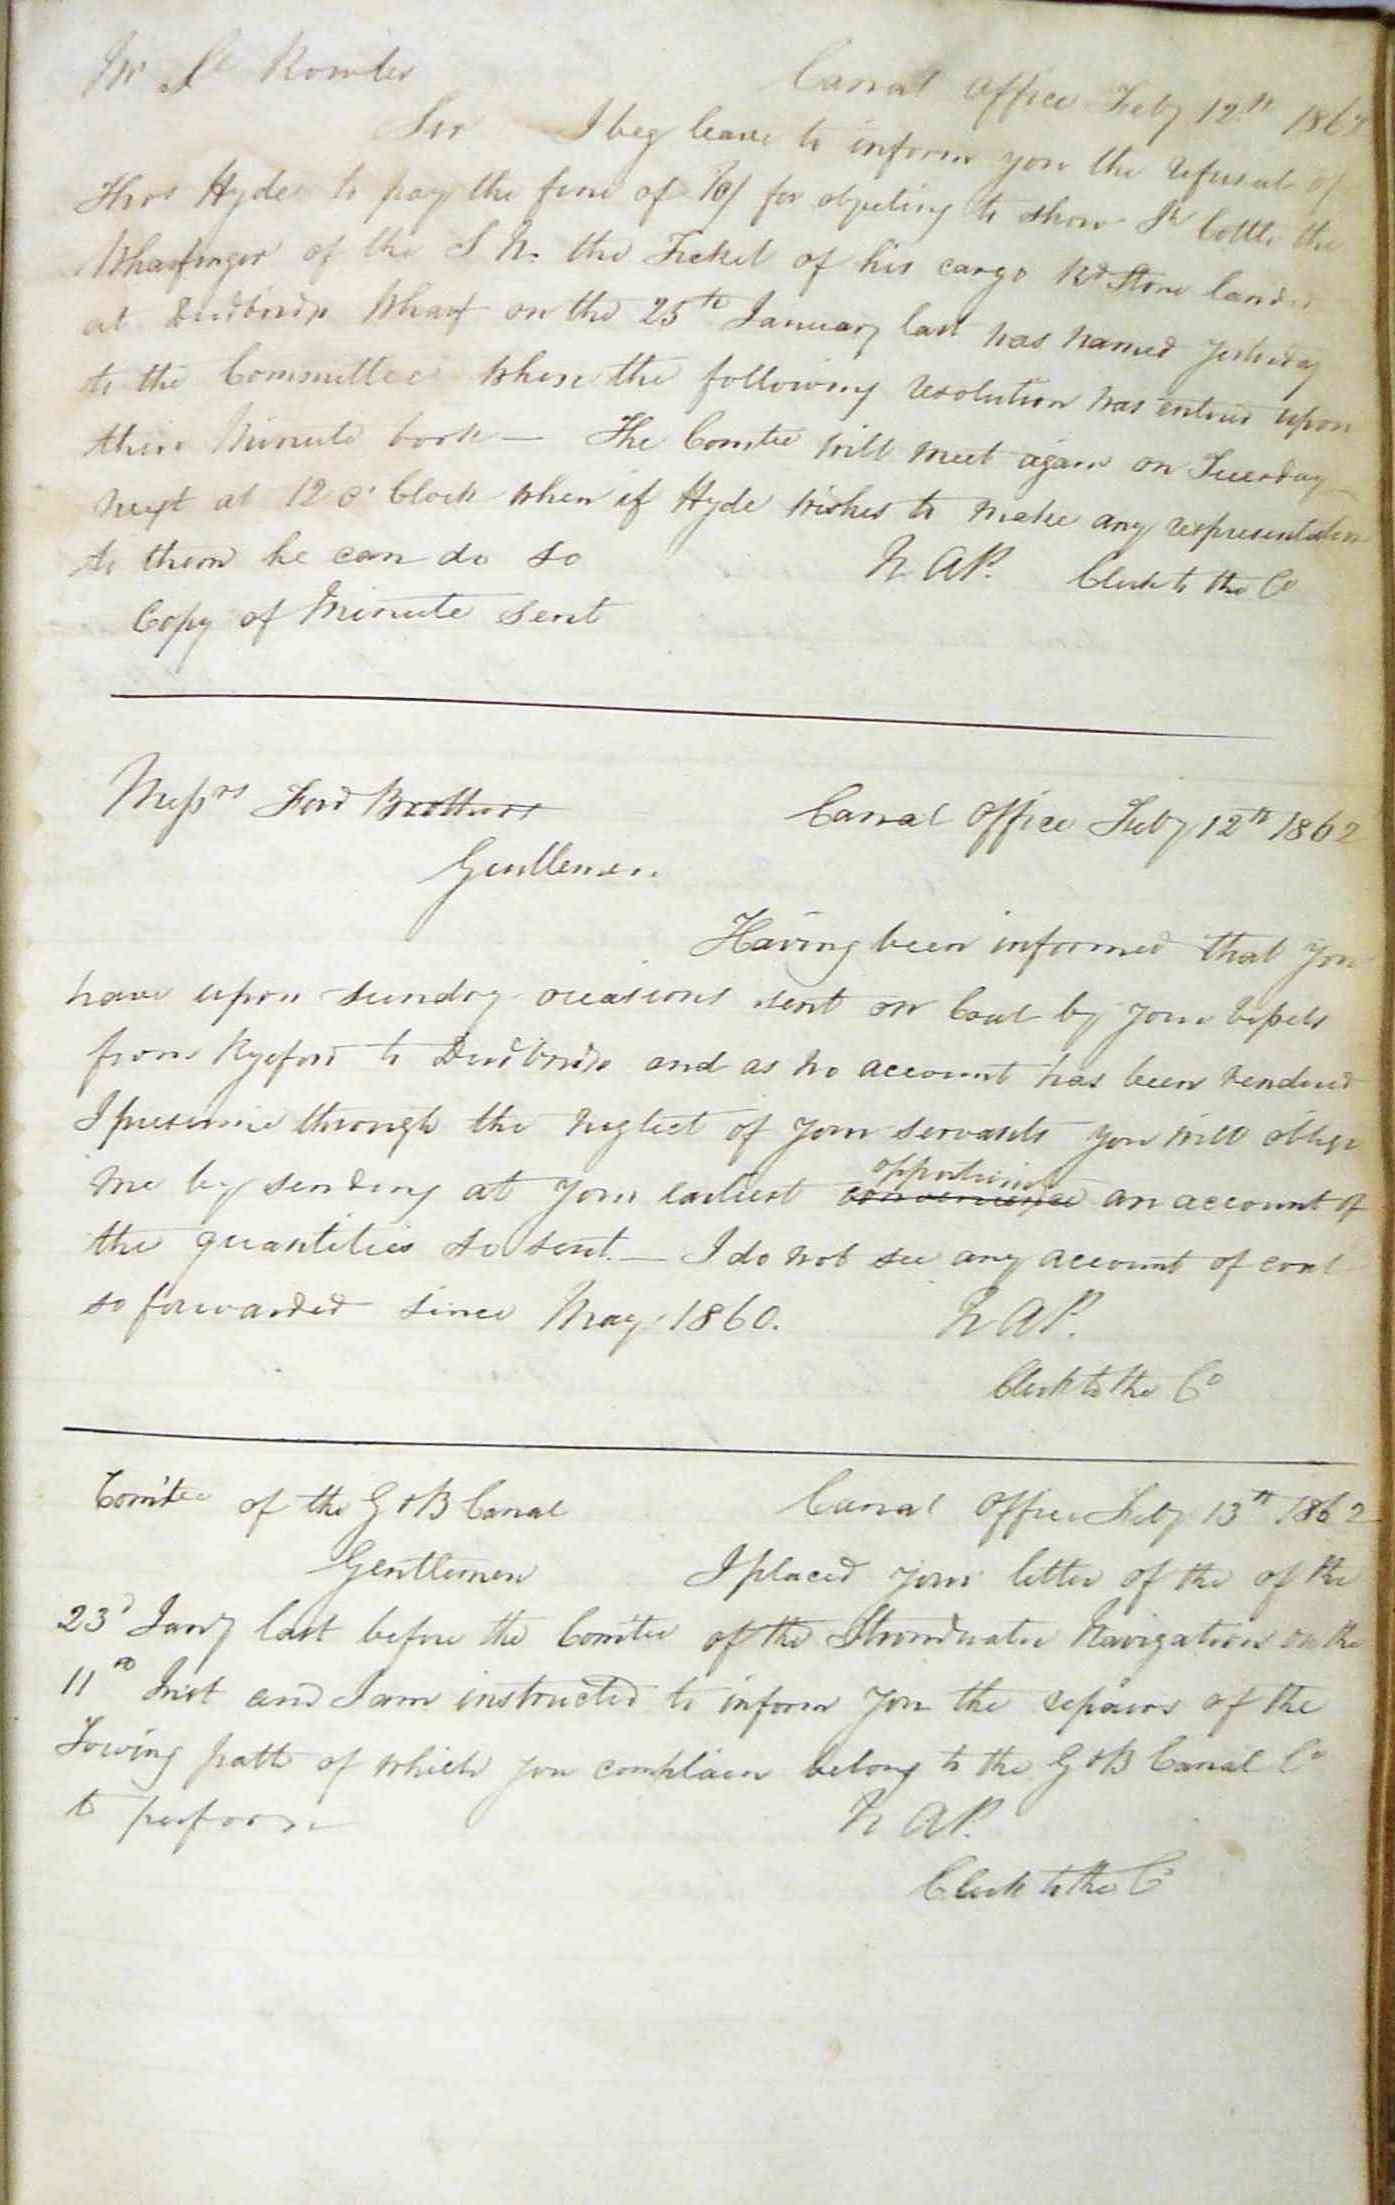 Mr Jn Rowles Canal Office Feby 12th 1862
Sir I beg leave to inform you the refusal of
Thos Hyde to pay the fine of 10/ for objecting to show Jn Cottle the
Wharfinger of the S N. the Ticket of his cargo Rd Stone landed
at Dudbridge Wharf on the 25th January last was named yesterday
to the Committee when the following resolution was entered upon
their Minute book — The Comtee will meet again on Tuesday
next at 12 o'Clock when if Hyde wishes to make any representation
to them he can do so W A P. Clerk to the Co
Copy of Minute sent
Messrs Ford Brothers Canal Office Feby 12th 1862
Gentlemen.
Having been informed that you
have upon sundry occasions sent on Coal by your vessels
from Ryeford to Dudbridge and as no account has been rendered
I presume through the neglect of your servants you will oblige
opportunity
me by sending at your earliest convenience an account of
the quantities so sent — I do not see any account of coal
so forwarded since May 1860. W A P.
Clerk to the Co
Comtee of the G & B Canal Canal Office Feby 13th 1862
Gentlemen I placed your letter of the of the
23d Jany last before the Comtee of the Stroudwater Navigation on the
11th Inst and I am instructed to inform you the repairs of the
Towing path of which you complain belong to the G & B Canal Co
to perform W A P.
Clerk to the Co